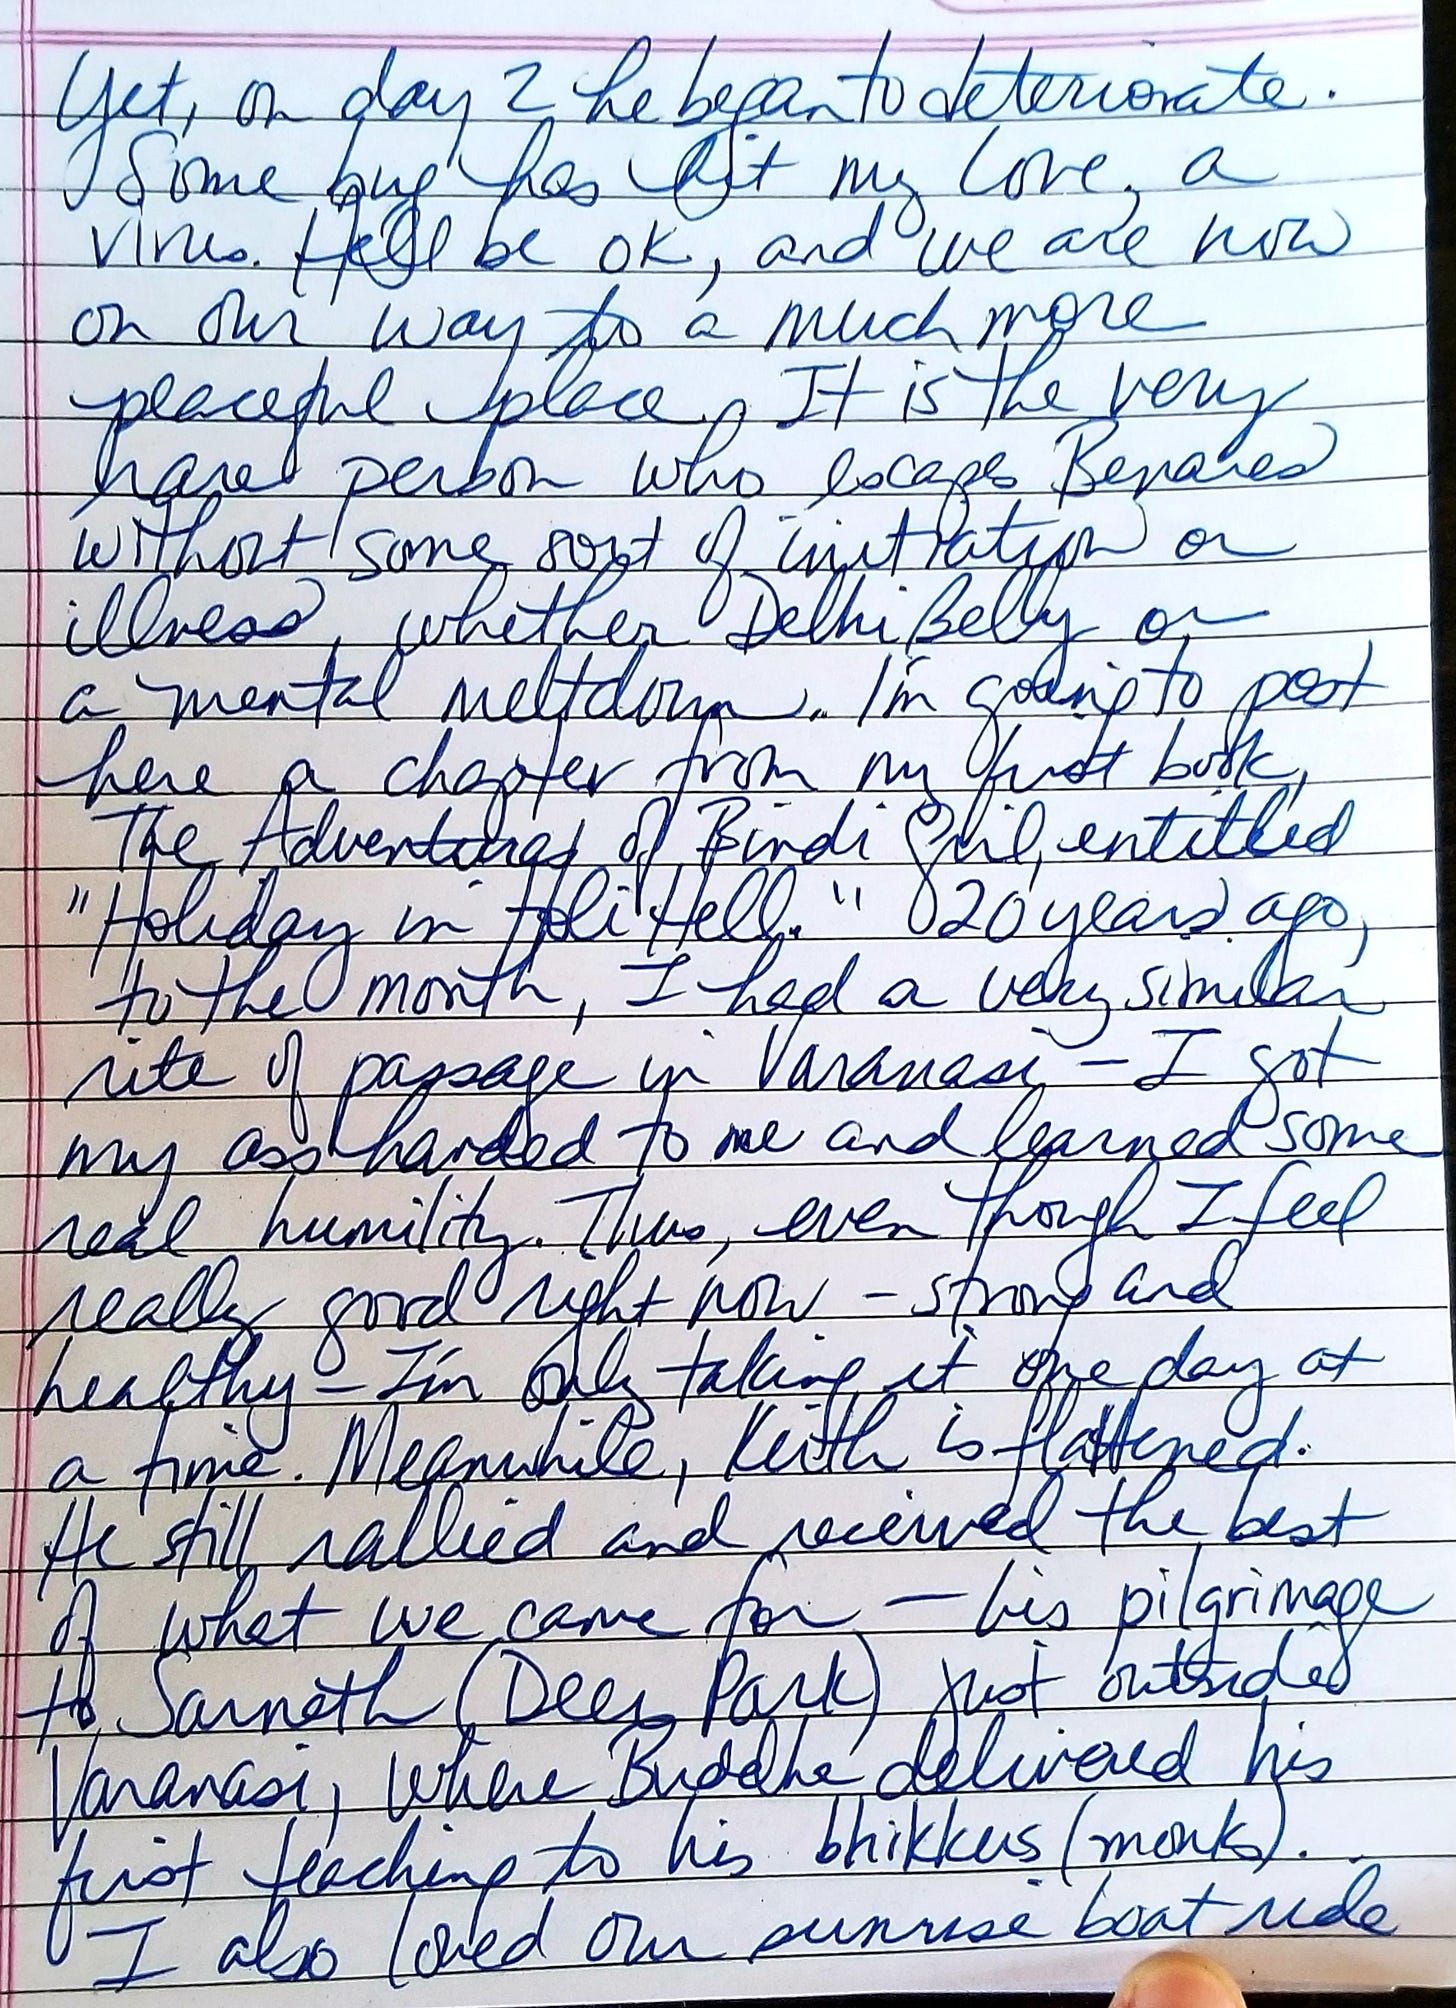 Yet, on day 2 he began to deteriorate.
Some bug has hit my love, a
virus. He'll be ok, and we are now
on our way to a much more
peaceful place. It is the very
rare person who escapes Benares
without some sort of initiation or
illness, whether Delhi Belly or
a mental meltdown. I'm going to post
here a chapter from my first book,
The Adventures of Bindi Girl, entitled
"Holiday in Holi Hell." 20 years ago,
to the month, I had a very similar
rite of passage in Varanasi - I got
my ass handed to me and learned some
real humility. Thus, even though I feel
really good right now - strong and
healthy - I'm only taking it one day at
a time. Meanwhile, Keith is flattened.
He still rallied and received the best
of what we came for - his pilgrimage
to Sarnath (Deer Park) just outside
Varanasi, where Buddha delivered his
first teaching to his bhikkus (monks).
I also loved our sunrise boat ride